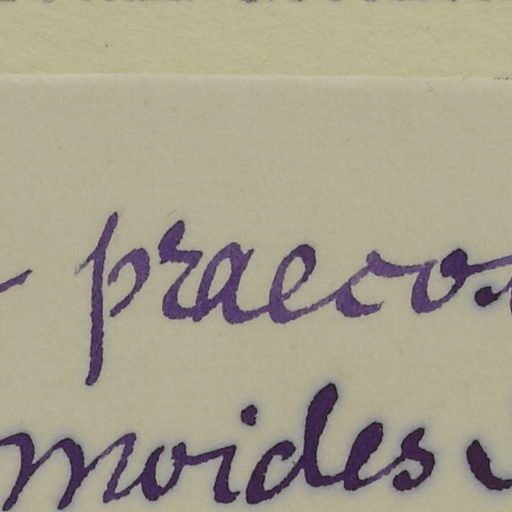 praeco
moides